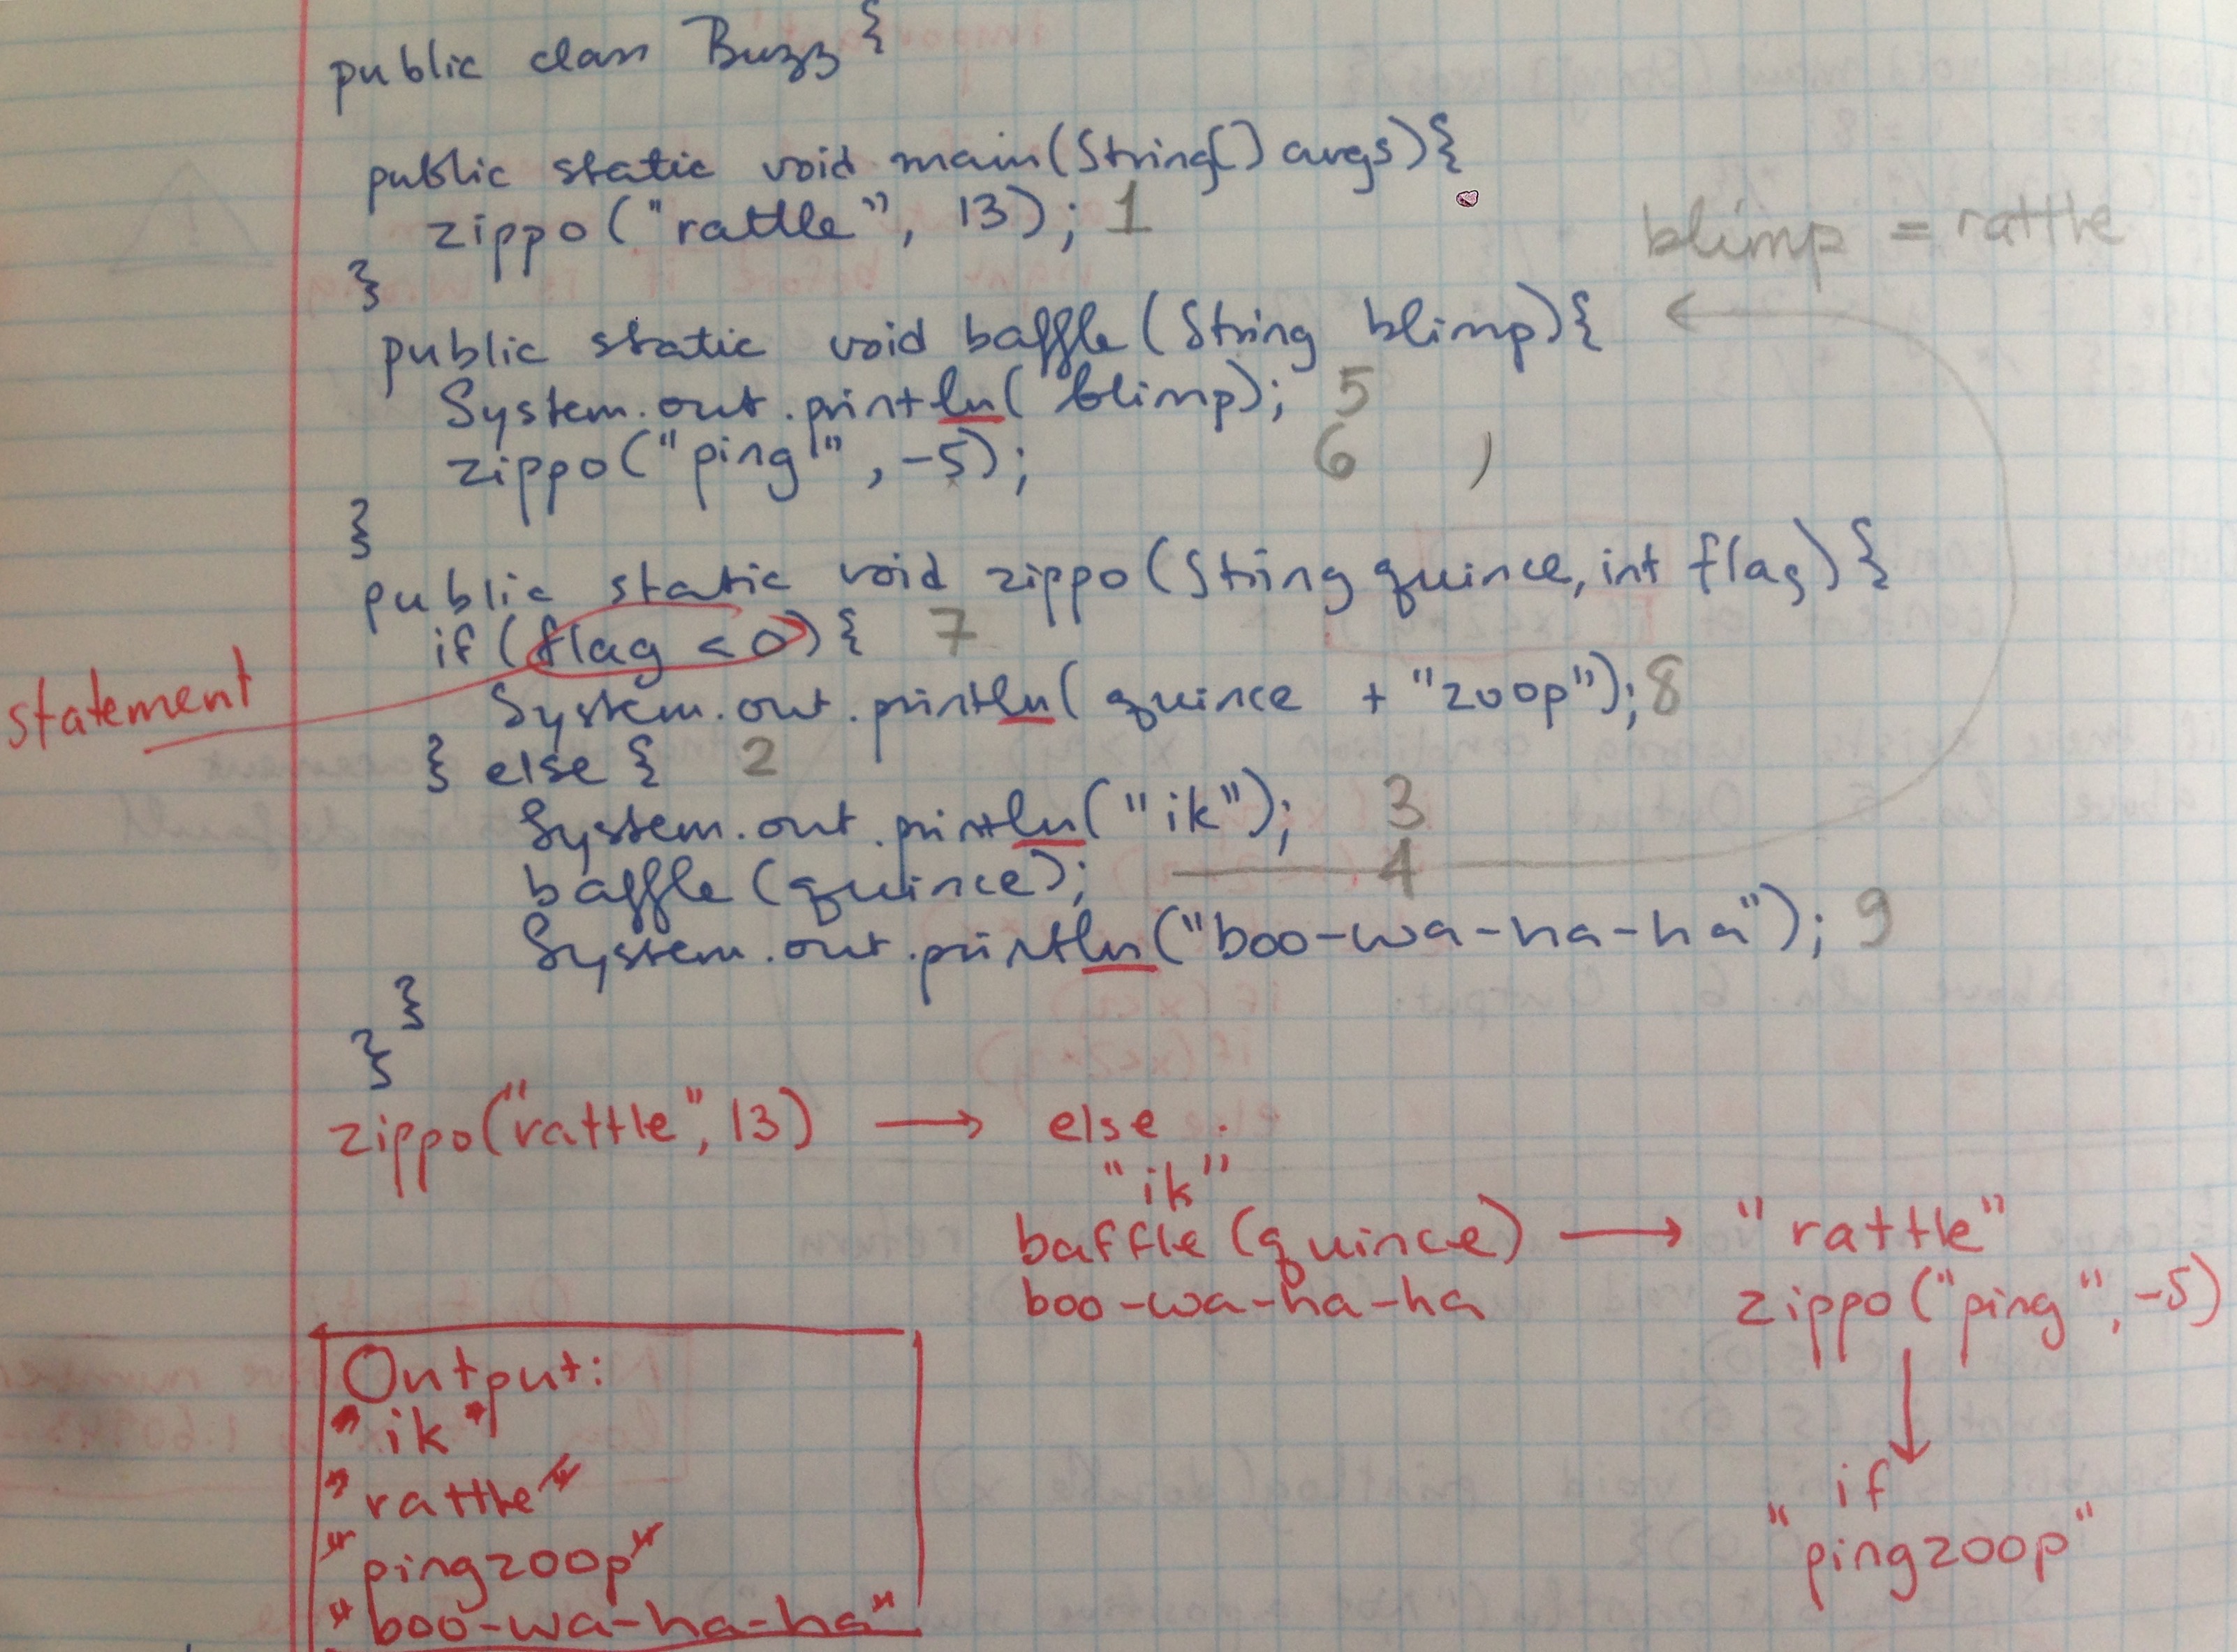 public class Buzz {
public static void main(String[] args){
zippo("rattle", 13); 1
}
blimp = rattle
public static void baffle(String blimp){
System.out.println(blimp); 5
zippo("ping", -5); 6 )
}
public static void zippo(String quince, int flag){
if (flag < 0) { 7
statement
System.out.println(quince + "zoop"); 8
} else { 2
System.out.println("ik"); 3
baffle(quince); 4
System.out.println("boo-wa-ha-ha"); 9
}
}
zippo("rattle", 13) → else
"ik"
baffle(quince) → "rattle"
boo-wa-ha-ha zippo("ping", -5)
↓
if
"pingzoop"
Output:
"ik"
"rattle"
"pingzoop"
"boo-wa-ha-ha"